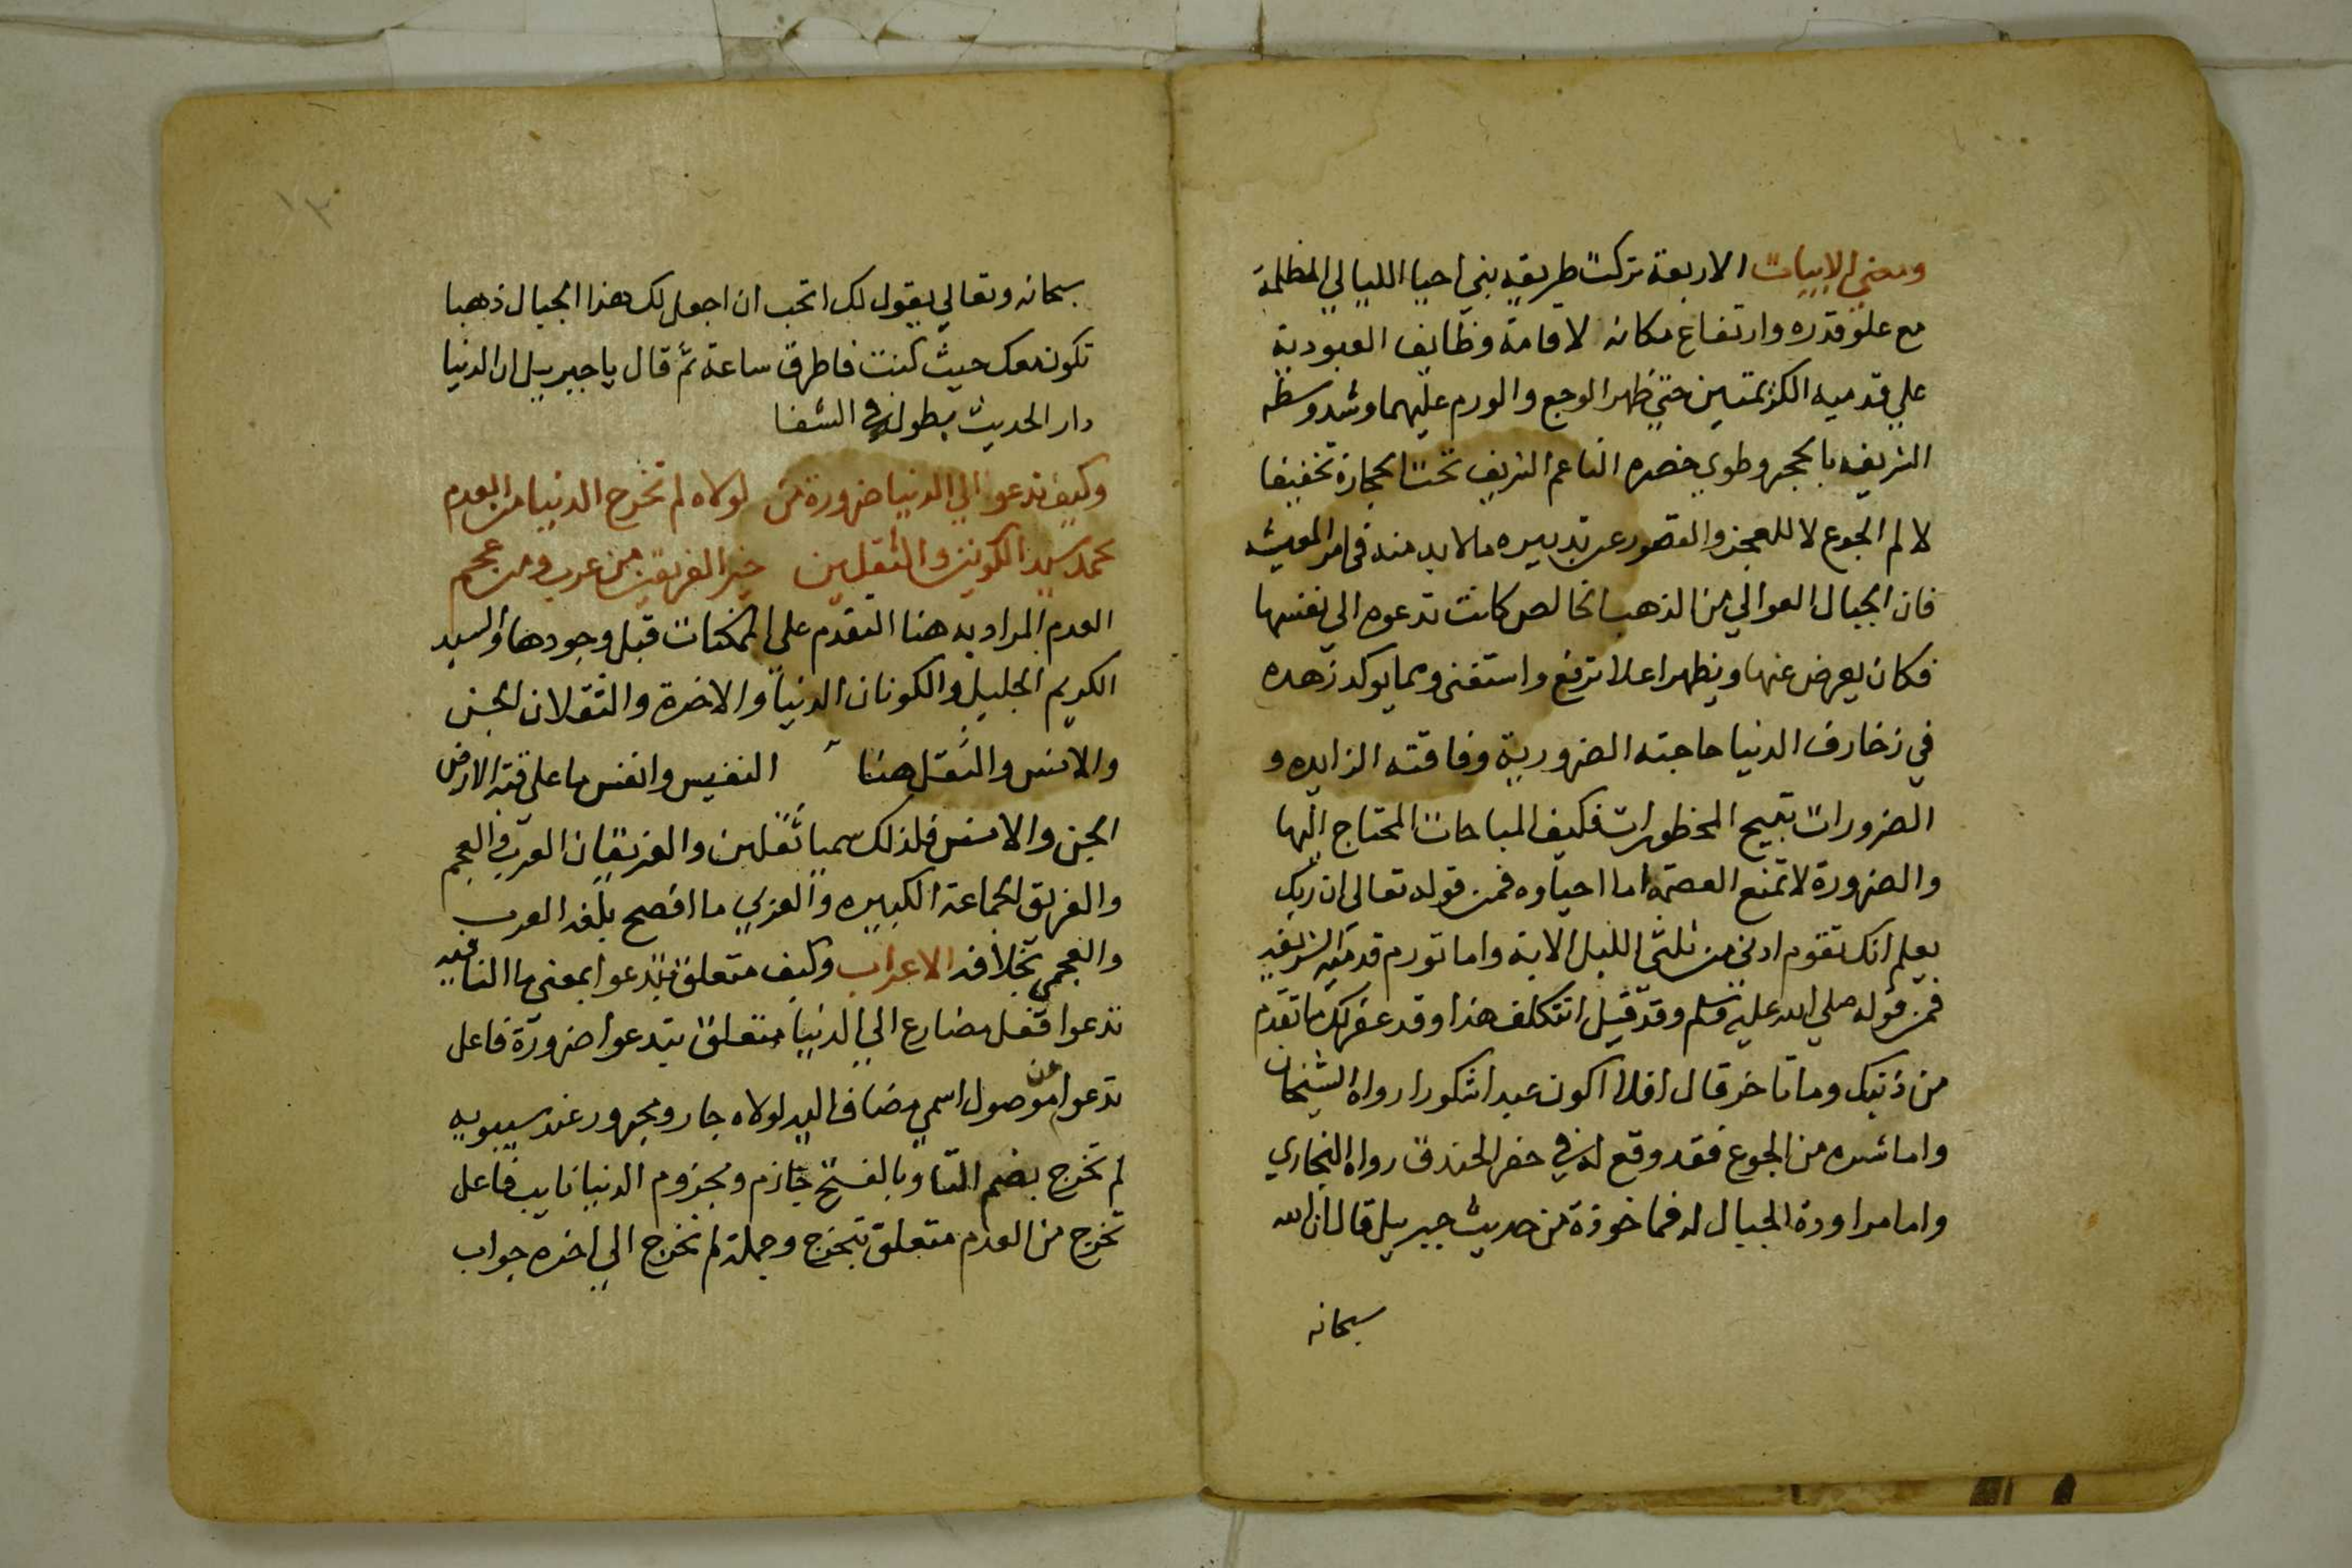 ومعني الابيات الاربعة تركت طريقه بني احيا الليالي المظلمة
مع علو قدره وارتفاع مكانه لاقامة وظايف العبودية
علي قدميه الكريمتين حتي ظهر الوجع والورم عليهما وشد وسطه
الشريف بالحجر وطوي خصره الناعم الشريف تحت الحجارة تخفيفا
لالم الجوع لا للعجز والقصور عن تدبيره ما لابد منه في امر المعيشه
فان الجبال العوالي من الذهب الخالص كانت تدعوه الي نفسها
فكان يعرض عنها ويظهر اعلا ترفع واستغنى ومما يوكد زهده
في زخارف الدنيا حاجته الضرورية وفاقته الزايده و
الضرورات تبيح المحظورات فكيف المباحات المحتاج اليها
والضرورة لا تمنع العصمة اما احياوه فمن قوله تعالى ان ربك
يعلم انك تقوم ادنى من ثلثي الليل الاية واما تورم قدميه الشريفه
فمن قوله صلي الله عليه وسلم وقد قيل اتتكلف هذا وقد غفر لك ما تقدم
من ذنبك وما تاخر قال افلا اكون عبدا شكورا رواه الشيخان
واما شده من الجوع فقد وقع له في حفر الخندق رواه البخاري
واما مراودة الجبال له فماخوذة من حديث جبريل قال ان الله
سبحانه
١٣٠
سبحانه وتعالي يقول لك اتحب ان اجعل لك هذا الجبال ذهبا
تكون معك حيث كنت فاطرق ساعة ثم قال يا جبريل ان الدنيا
دار الحديث بطوله في الشفا
وكيف تدعوا الي الدنيا ضرورة من لولاه لم تخرج الدنيا من العدم
محمد سيد الكونين والثقلين خير الفريقين من عرب ومن عجم
العدم المراد به هنا التقدم على الممكنات قبل وجودها والسيد
الكريم الجليل والكونان الدنيا والاخرة والثقلان الجن
والانس والثقل هنا النفيس وانفس ما على قبة الارض
الجن والانس فلذلك سميا ثقلين والفريقان العرب والعجم
والفريق الجماعة الكبيره والعربي ما افصح بلغه العرب
والعجمي بخلافه الاعراب وكيف متعلق بتدعوا بمعني ما النافيه
تدعوا فعل مضارع الي الدنيا متعلق بتدعوا ضرورة فاعل
تدعوا من موصول اسمي مضاف اليه لولاه جار ومجرور عند سيبويه
لم تخرج بضم التا وبالفتح جازم ومجزوم الدنيا نايب فاعل
تخرج من العدم متعلق بتخرج وجملة لم تخرج الي اخره جواب